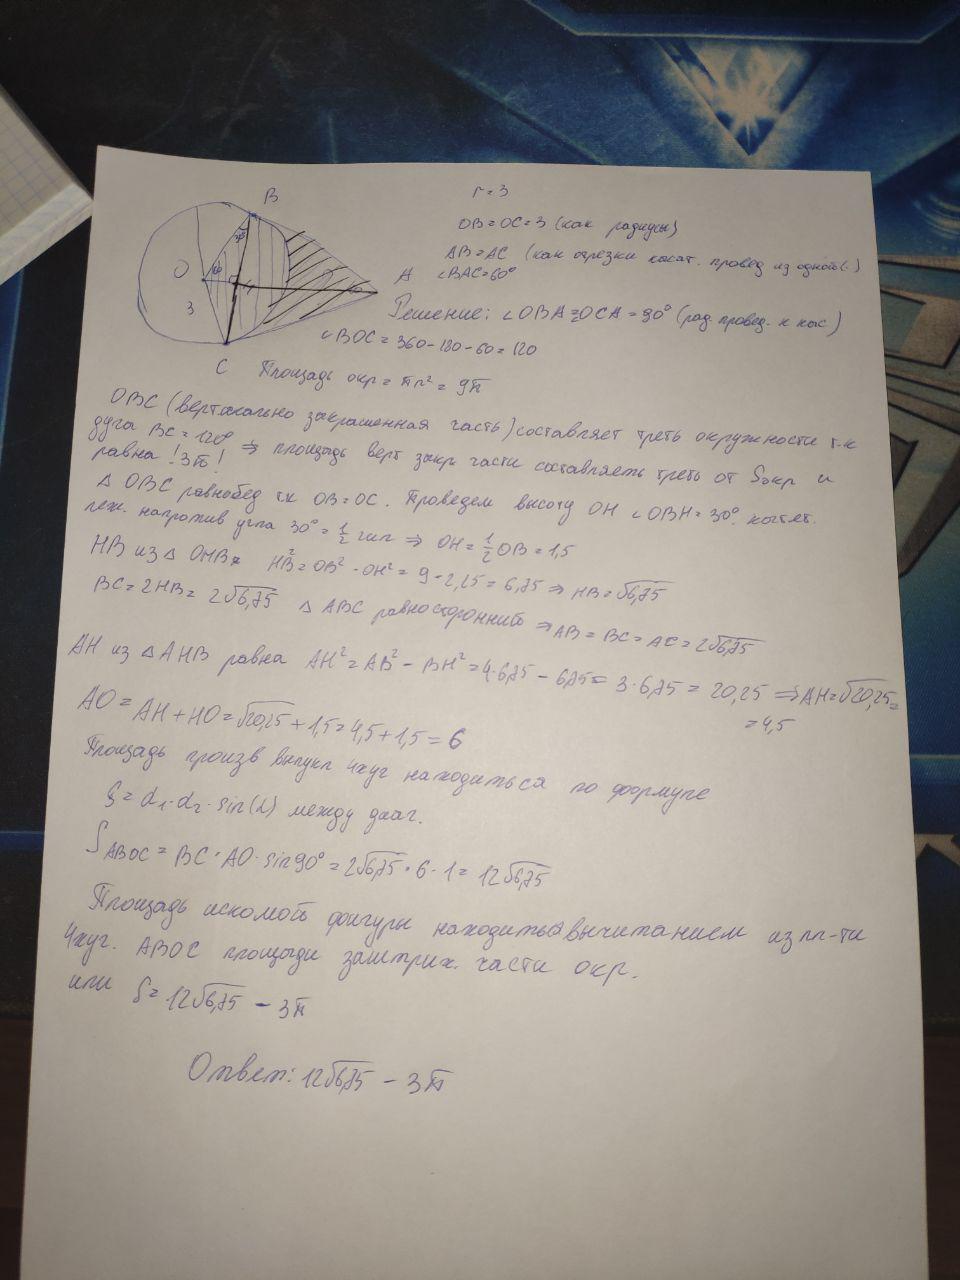 B
r=3
OB=OC=3 (как радиусы)
AB=AC (как отрезки касат. провед из одной (·)
A ∠BAC=60°
O
30°
60
3
Решение: ∠OBA=OCA=90° (рад. провед. к кас)
∠BOC = 360-180-60=120
C
Площадь окр = πr² = 9π
OBC (вертикально закрашенная часть) составляет треть окружности т.к
дуга BC=120° ⇒ площадь верт закр части составляет треть от Sокр и
равна !3π!
△ OBC равнобед т.к OB=OC. Проведем высоту OH ∠OBH=30°. катет.
леж. напротив угла 30°=1/2 гип ⇒ OH=1/2OB=1,5
HB из △ OHB HB²=OB²-OH²= 9-2,25=6,75 ⇒ HB=√6,75
BC=2HB= 2√6,75 △ ABC равносторонний ⇒ AB=BC=AC=2√6,75
AH из △AHB равна AH²=AB²-BH²=4·6,75-6,75= 3·6,75=20,25 ⇒AH=√20,25=
=4,5
AO=AH+HO=√20,25+1,5=4,5+1,5=6
Площадь произв выпукл 4хуг находиться по формуле
S=d₁·d₂·sin(α) между диаг.
S ABOC = BC·AO·sin90°=2√6,75·6·1=12√6,75
Площадь искомой фигуры находиться вычитанием из пл-ти
4хуг. ABOC площади заштрих. части окр.
или S=12√6,75 - 3π
Ответ: 12√6,75 - 3π